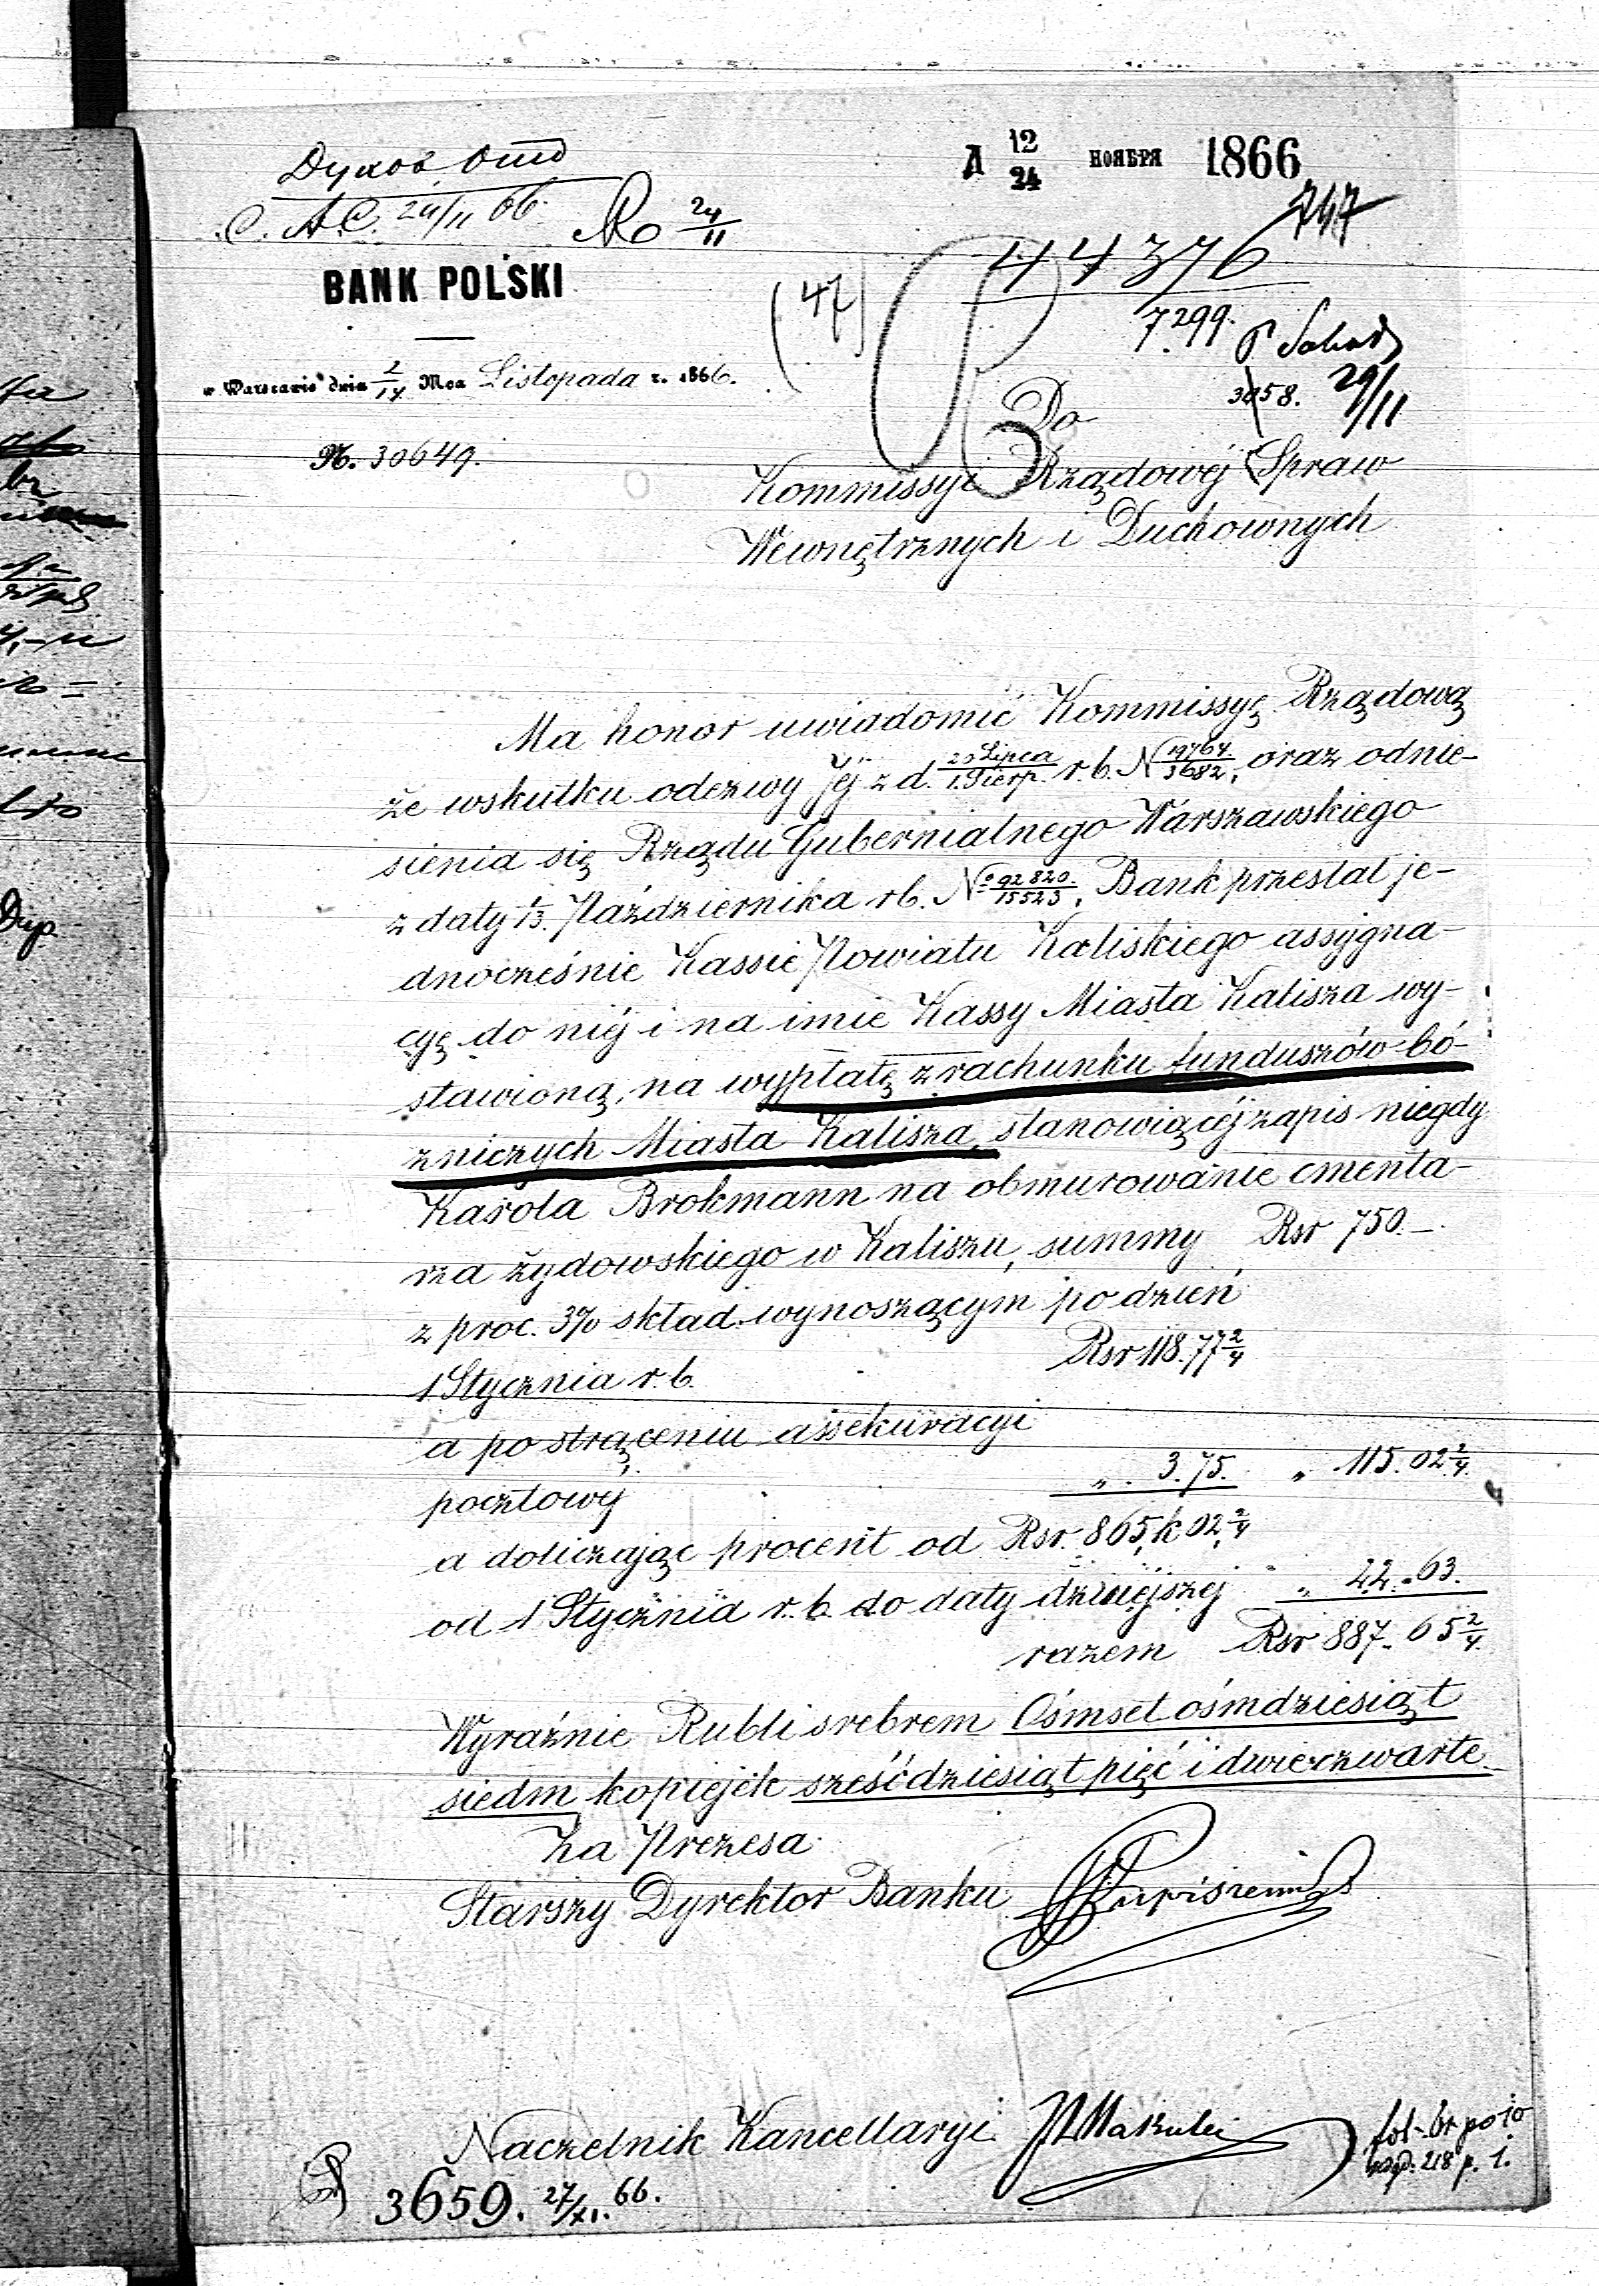 Духов. Отд
С. А. С. 24/11 66. 24/11
Д 12/24 НОЯБРЯ 1866
747
44376
7299.
(47)
BANK POLSKI
w Warszawie dnia 2/14 Mca Listopada r. 1866.
29/11
3058.
N. 30649.
Do
Kommissyi Rządowéj Spraw
Wewnętrznych i Duchownych
Ma honor uwiadomić Kommissyę Rządową
że wskutku odezwy Jéj z d. 20 Lipca/1 Sierp. r. b. N 19764/3682, oraz odnie-
sienia się Rządu Gubernialnego Warszawskiego
z daty 1/13. Października r b. No 92820./15523, Bank przesłał je-
dnocześnie Kassie Powiatu Kaliskiego assygna-
cyę do niéj i na imie Kassy Miasta Kalisza wy-
stawioną, na wypłatę z rachunku funduszów bó-
zniczych Miasta Kalisza, stanowiącéj zapis niegdy
Karola Brokmann na obmurowanie cmenta-
rza żydowskiego w Kaliszu, summy Rsr 750.—.
z proc. 3% skład. wynoszącym po dzień
1 Stycznia r. b. Rsr 118.77 2/4
a po strąceniu assekuracyi
pocztowéj „ 3.75. „ 115.02 2/4
a doliczając procent od Rsr. 865, k 02, 2/4
od 1 Stycznia r. b. do daty dzisiejszej „ 22.63.
razem Rsr 887. 65 2/4
Wyraźnie Rubli srebrem Ośmset ośmdziesiąt
siedm kopiejek sześćdziesiąt pięć i dwie czwarte.
Za Prezesa
Starszy Dyrektor Banku
Naczelnik Kancellaryi
3659. 27/XI. 66.
218 p. 1.